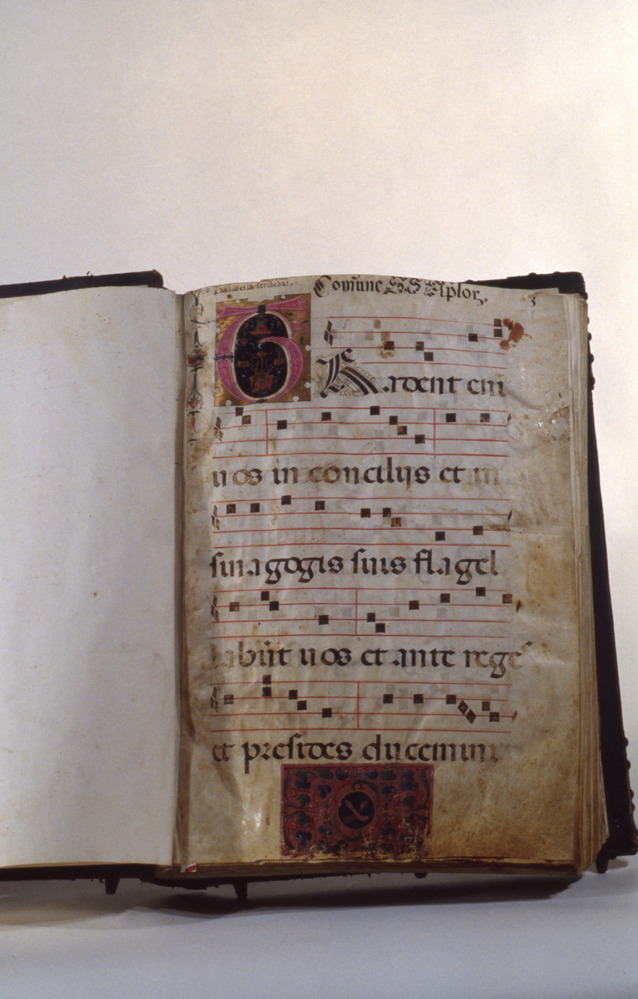 Comũne SS Aplor,
3
TRadent em̃
uos in concilijs et in
sinagogis suis flagel
labũt uos et ante rege
et presides ducemini